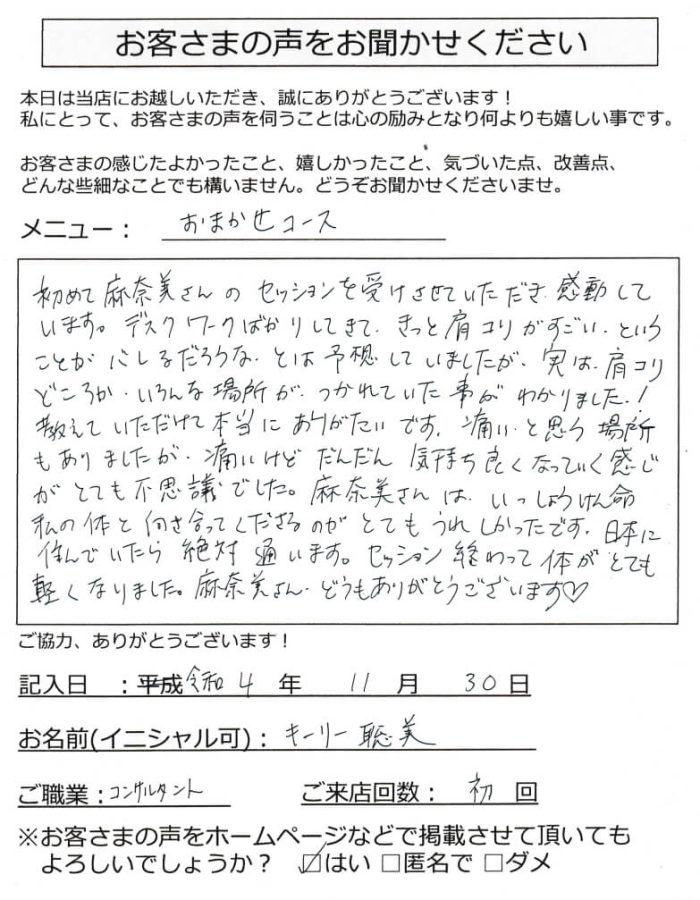 お客さまの声をお聞かせください
本日は当店にお越しいただき、誠にありがとうございます!
私にとって、お客さまの声を伺うことは心の励みとなり何よりも嬉しい事です。
お客さまの感じたよかったこと、嬉しかったこと、気づいた点、改善点、
どんな些細なことでも構いません。どうぞお聞かせくださいませ。
メニュー: おまかせコース
初めて麻奈美さんの セッションを受けさせていただき、感動して
います。デスクワークばかりしてきて、きっと肩コリがすごい、という
ことが バレるだろうな、とは予想していましたが、実は、肩コリ
どころか、いろんな場所が、つかれていた事が わかりました!
教えていただけて本当に ありがたいです。痛い、と思う場所
もありましたが、痛いけど だんだん 気持ち良くなっていく感じ
が とても不思議でした。麻奈美さんは、いっしょうけん命
私の体と向き合ってくださるのが とても うれしかったです。日本に
住んでいたら 絶対 通います。セッション 終わって 体が とても
軽くなりました。麻奈美さん、どうもありがとうございます♡
ご協力、ありがとうございます!
記入日 :平成 令和 4 年 11 月 30 日
お名前(イニシャル可): キーリー 聡美
ご職業:コンサルタント ご来店回数: 初 回
※お客さまの声をホームページなどで掲載させて頂いても
よろしいでしょうか? ☑はい □匿名で □ダメ